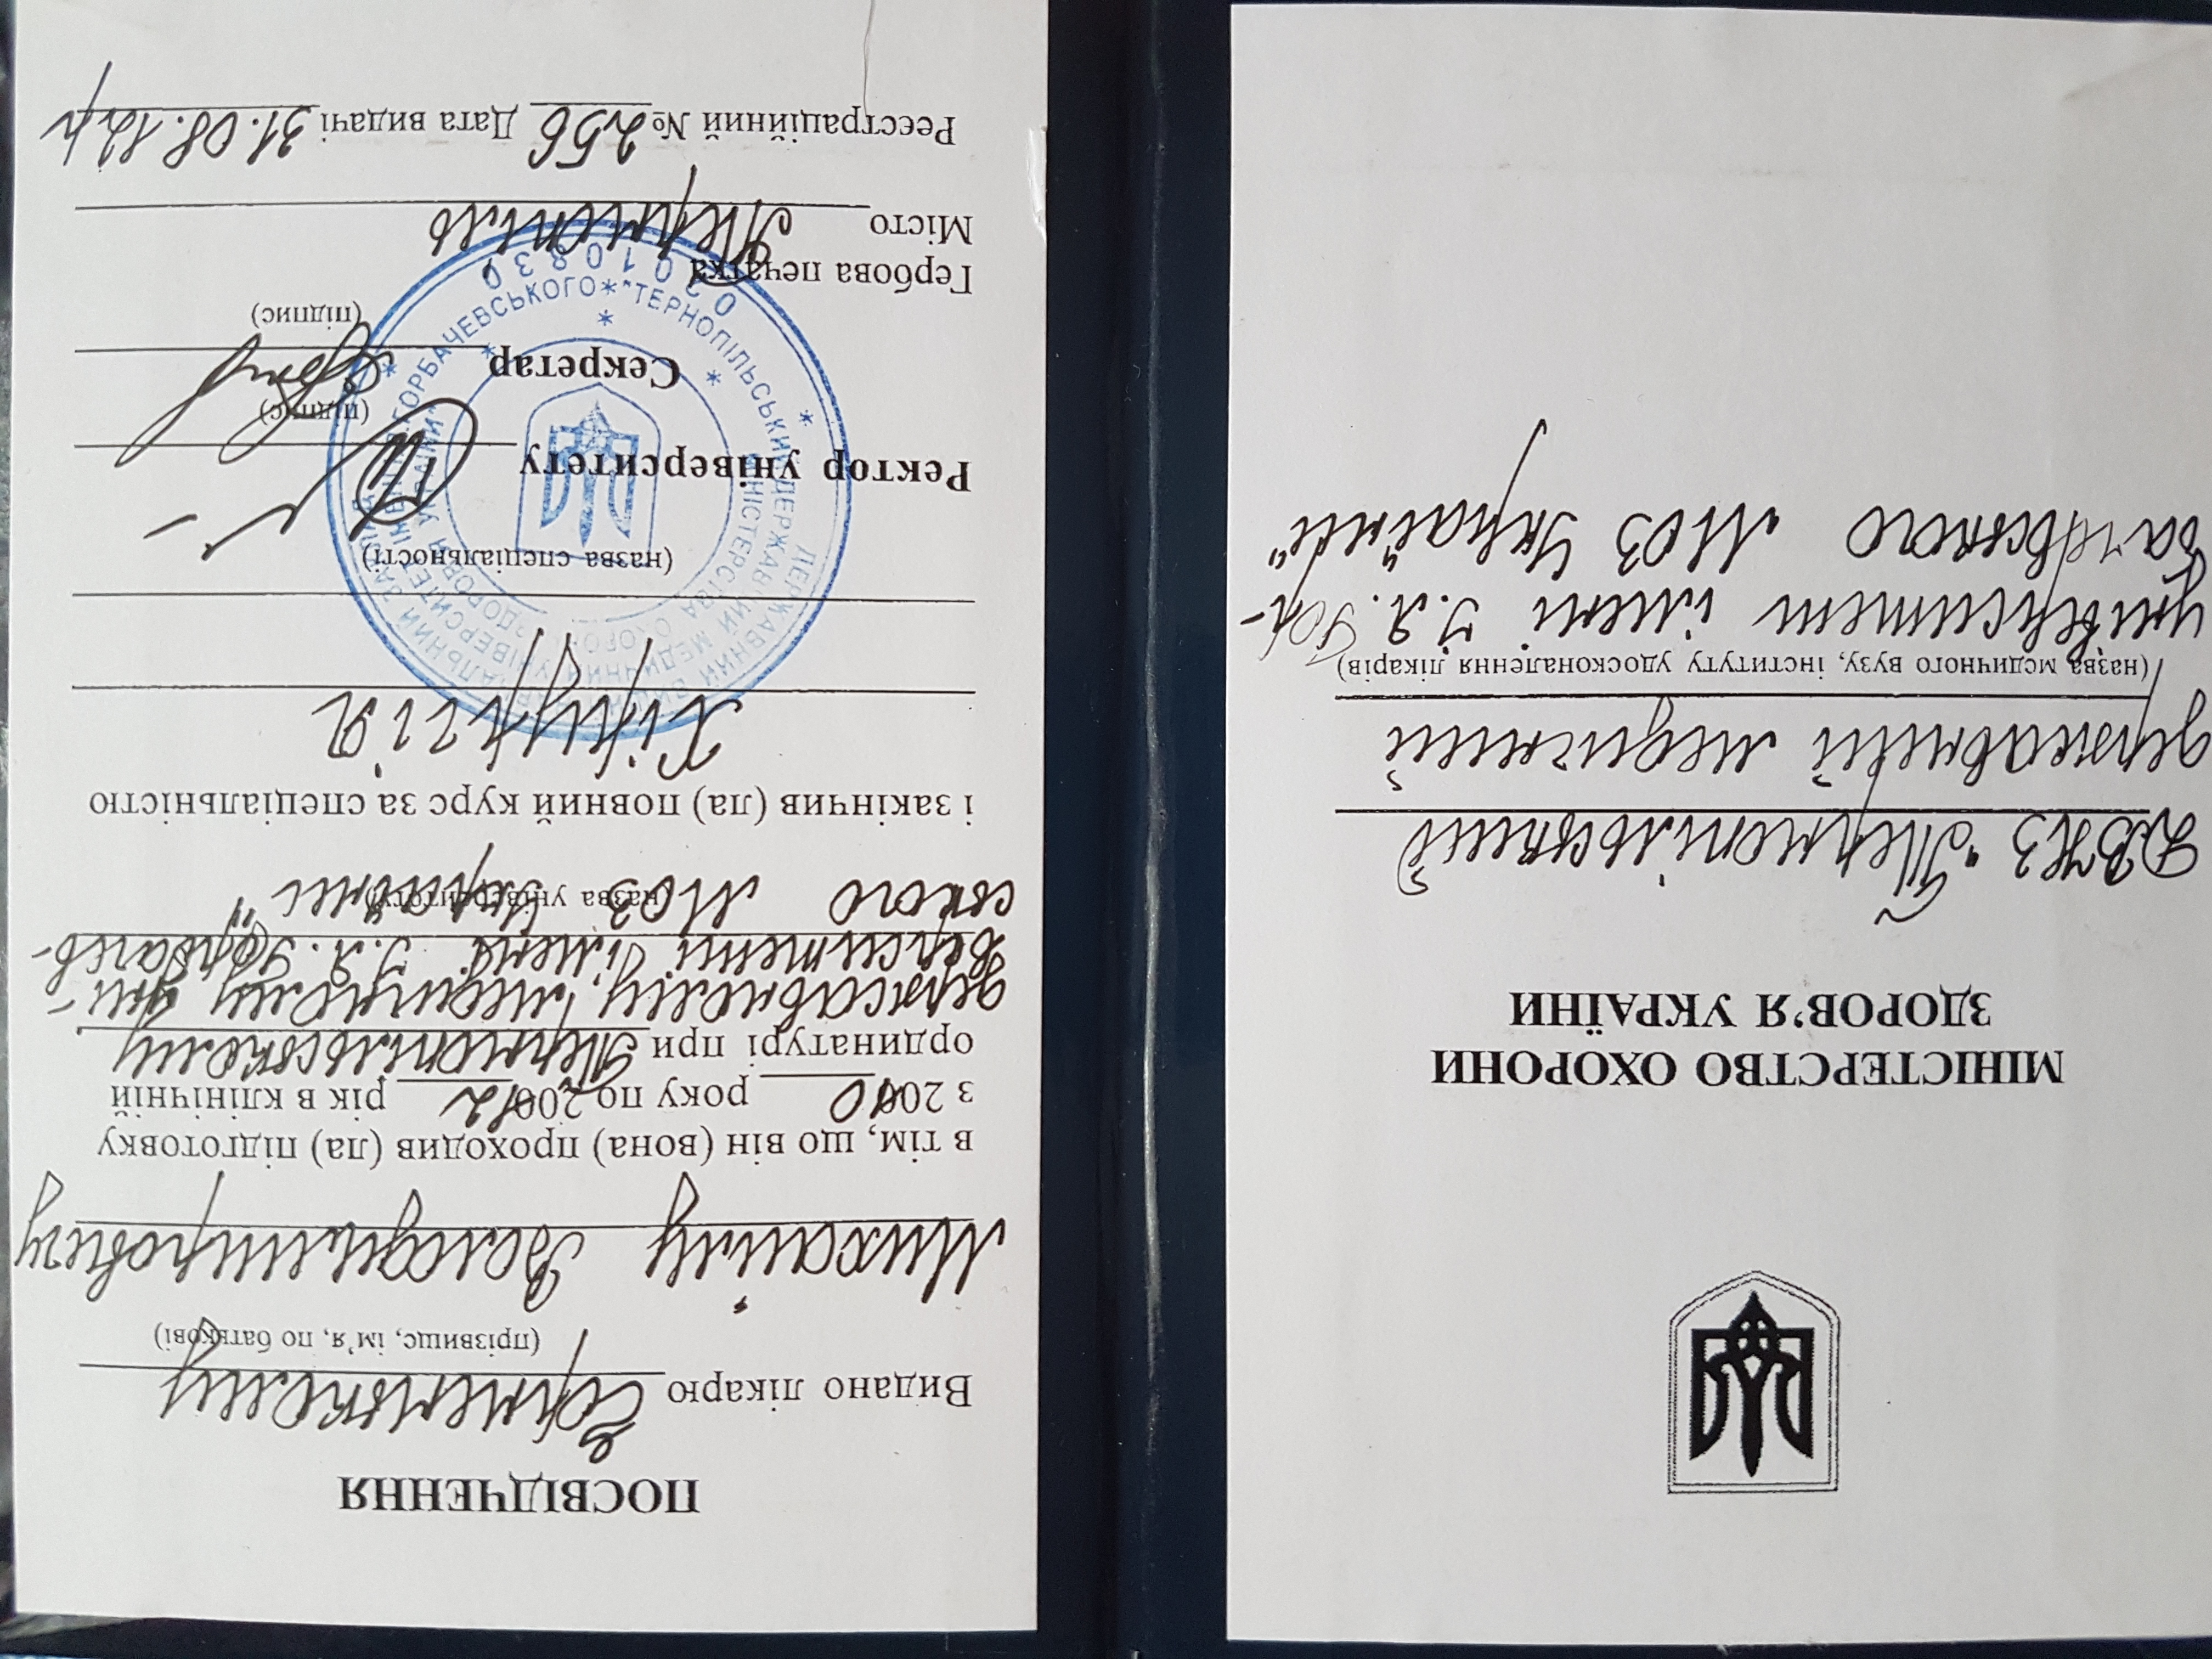 МІНІСТЕРСТВО ОХОРОНИ
ЗДОРОВ'Я УКРАЇНИ
ДВНЗ „Тернопільський
державний медичний
(назва медичного вузу, інституту удосконалення лікарів)
університет імені І.Я. Гор-
бачевського МОЗ України"
ПОСВІДЧЕННЯ
Видано лікарю
(прізвище, ім'я, по батькові)
Михайлу Володимировичу
в тім, що він (вона) проходив (ла) підготовку
з 2010 року по 2012 рік в клінічній
ординатурі при Тернопільському
державному медичному уні-
верситеті імені І.Я. Горбачев-
ського МОЗ України"
(назва університету)
і закінчив (ла) повний курс за спеціальністю
Хірургія
(назва спеціальності)
Ректор університету
(підпис)
Секретар
(підпис)
Гербова печатка
Місто Тернопіль
Реєстраційний № 256 Дата видачі 31.08.12р
ДЕРЖАВНИЙ ВИЩИЙ НАВЧАЛЬНИЙ ЗАКЛАД
"ТЕРНОПІЛЬСЬКИЙ ДЕРЖАВНИЙ МЕДИЧНИЙ УНІВЕРСИТЕТ ІМЕНІ І.Я. ГОРБАЧЕВСЬКОГО
МІНІСТЕРСТВА ОХОРОНИ ЗДОРОВ'Я УКРАЇНИ"
02010830